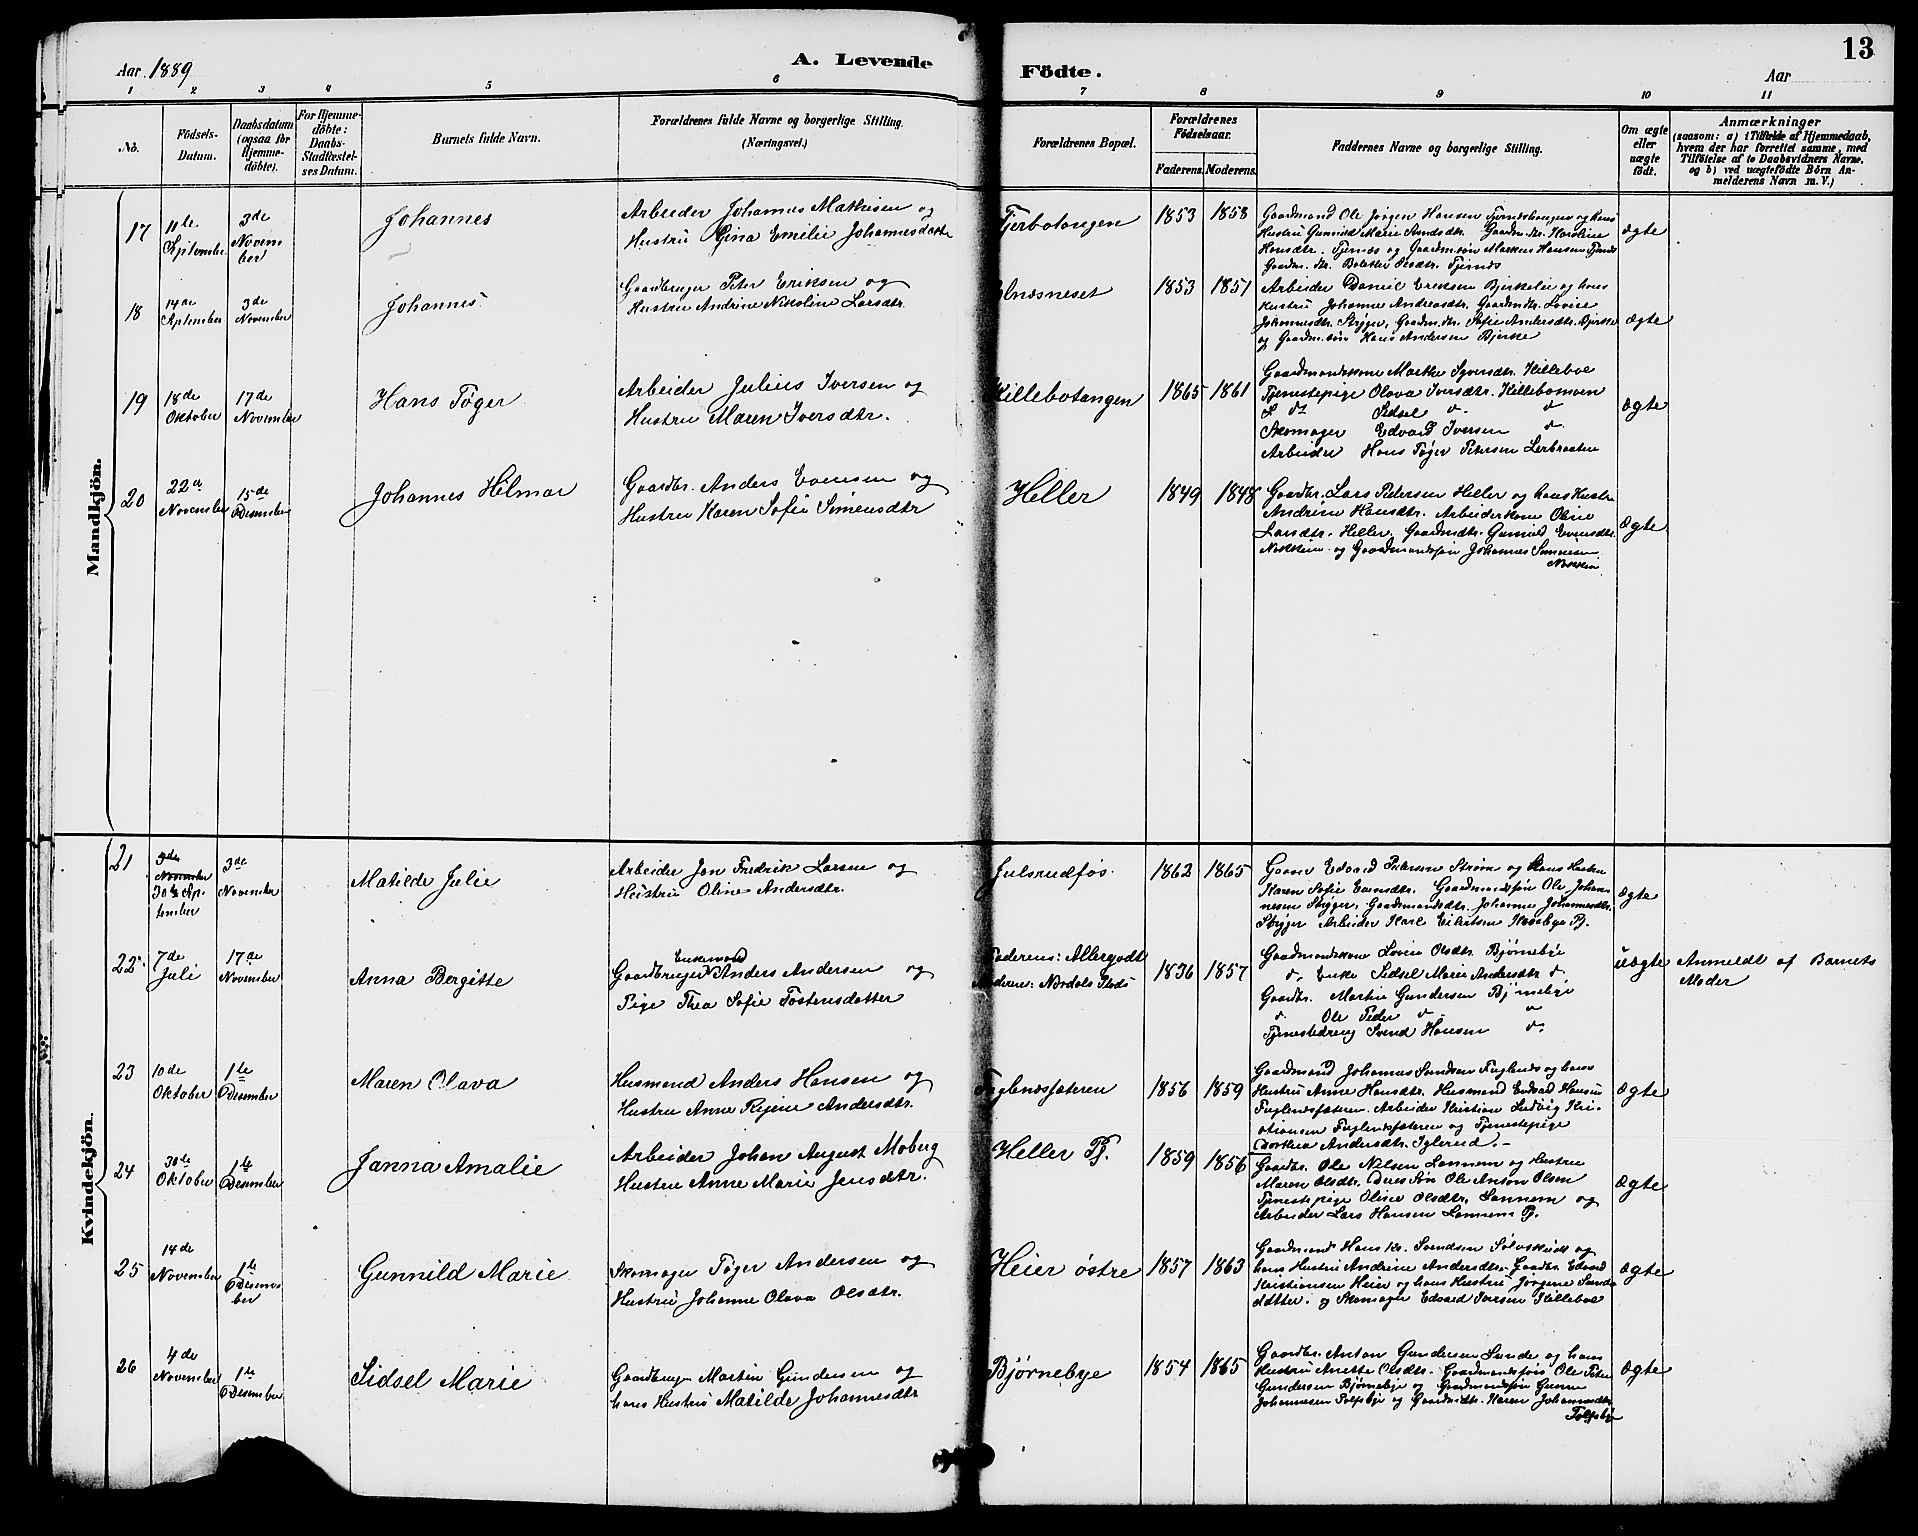 Aar 1889
A. Levende
Födte.
13
Aar
1 2 3 4 5 6 7 8 9 10 11
No.
Födsels-
Datum.
Daabsdatum
(ogsaa for
Hjemme-
döbte).
For Hjemme-
döbte:
Daabs-
Stadfæstel-
ses Datum.
Barnets fulde Navn.
Forældrenes fulde Navne og borgerlige Stilling.
(Næringsvei.)
Forældrenes Bopæl.
Forældrenes
Födselsaar.
Faderens. Moderens.
Faddernes Navne og borgerlige Stilling.
Om ægte
eller
uægte
født.
Anmærkninger
(saasom: a) i Tilfælde af Hjemmedaab,
hvem der har forrettet samme, med
Tilföielse af to Daabsvidners Navne.
og b) ved uægtefödte Börn An-
melderens Navn m. V.)
Mandkjön.
17
11te
September
3de
Novem
ber
Johannes
Arbeider Johannes Mathisen og
Hustru Gina Emilie Johannesdatter
Tjerbotangen
1853 1858
Gaardmand Ole Jørgen Hansen og hans
Hustru Gunnild Marie Gaardm. dtr. Karoline
Hansdtr. Tjernæs og Gaardm.søn Markus Hansen Tjernæs
Gaardm. dtr. Tjernæs
ægte
18
14de
September
3de
November
Johannes
Gaardbruger Peter Eriksen og
Hustru Andrine Nikoline Larsdtr.
Elnæsneset
1853 1851
Arbeider Daniel Eriksen Bjerkelei og hans
Hustru Johanne Andreasdtr. Gaardmdtr. Lovise
Johannesdtr. Stryger, Gaardm.dtr. Sofie Andersdtr. Bjerke
og Gaardm.søn Hans Andersen Bjerke
ægte
19
18de
Oktober
17de
November
Hans Tøger
Arbeider Julius Iversen og
Hustru Maren Iversdtr.
Killebotangen
1865 1861
Gaardmandskone Marthe Syversdtr. Killeboe
Tjenestepige Olava Iversdtr. Killebomoen
Sidsel
Skomager Edvard Iversen
Arbeider Hans Tøger Petersen Lerbraaten
ægte
20
22de
November
15de
Desember
Johannes Hilmar
Gaardbr. Anders Evensen og
Hustru Karen Sofie Simensdtr
Heller
1849 1848
Gaardbr. Lars Pedersen Heller og hans Hustru
Andrine Hansdtr. Arbeiderkone Oline
Larsdtr. Heller, Gaardmdtr. Gunnild Evensdtr.
og Gaardmandssøn Johannes
ægte
Kvindekjön.
21
November
30te Sep-
tember
3de
November
Matilde Julie
Arbeider Jon Fredrik Larsen og
Hustru Oline Andersdtr.
Julsrudfos
1862 1865
Edvard Petersen Strøm og hans Hustru
Karen Sofie Evensdtr. Gaardmandssøn Ole Johan-
nesen Stryger, Gaardmandsdtr. Johanne Johannesdtr.
Stryger Arbeider Karl Pj.
ægte
22
7de
Juli
17de
November
Anna Bergitte
Enkemand
Gaardbruger Anders Andersen og
Pige Thea Sofie Tostensdatter
Faderens: Allergodt
Moderens: Nordals Plads
1836 1857
Gaardmandskone Lovise Olsdtr. Bjørnebye
Enke Sidsel Marie Andersdtr
Gaardbr. Martin Gundersen Bjørnebye
Ole Peder
Tjenestedreng Svend Hansen
uægte
Anmeldt af Barnets
Moder
23
10de
Oktober
1te
Desember
Maren Olava
Husmand Anders Hansen og
Hustru Anne Regine Andersdtr.
Fuglenæsfæteren
1856 1859
Gaardmand Johannes Fuglenæs og hans
Hustru Anne Hansdtr. Husmand Edvard Hansen
Fuglenæsfæteren. Arbeider Kristian Ludvig Kri-
stiansen Fuglenæsfæteren og Tjenestepige
Dorthea Andersdtr. Iglerud.
ægte
24
30te
Oktober
1te
Desember
Janna Amalie
Arbeider Johan August Moberg
Hustru Anne Marie Jensdtr.
Heller Pj.
1859 1856
Gaardbr. Ole Nilsen Lonnem og Hustru
Maren Olsdtr. Deres Søn Ole Anton Olsen
Tjenestepige Oline Olsdtr. Lonnem og
Arbeider Lars Hansen Lonnem Pj.
ægte
25
14de
November
1te
Desem
ber
Gunnild Marie
Skomager Tøger Andersen og
Hustru Johanne Olava Olsdtr.
Heier østre
1857 1863
Gaardmand Hans Kr. Svendsen Sølvskudt og
hans Hustru Andrine Andersdtr. Gaardbr. Edvard
Kristiansen Heier og hans Hustru Jørgine
datter. og Skomager Edvard Iversen Killeboe
ægte
26
4de
November
1te
Desember
Sidsel Marie
Gaardbruger Martin Gundersen og
hans Hustru Matilde Johannesdtr
Bjørnebye
1854 1865
Gaardbr. Anton Gundersen Sunde og hans
Hustru Anette Olsdtr. Gaardmandssøn Ole Peter
Gundersen Bjørnebye og Gaardmandssøn Gunnar
Johannesen og Gaardmdtr. Karen Johannesdtr.
ægte